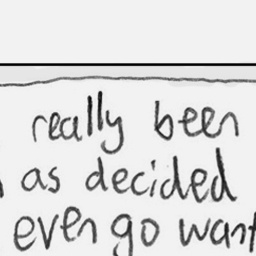 really been
as decided
even go want